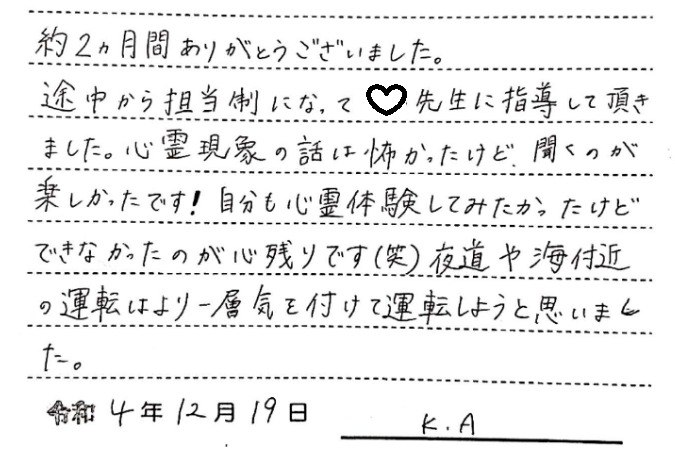 約2ヵ月間ありがとうございました。
途中から担当制になって♡先生に指導して頂き
ました。心霊現象の話は怖かったけど、聞くのが
楽しかったです!自分も心霊体験してみたかったけど
できなかったのが心残りです(笑)夜道や海付近
の運転はより一層気を付けて運転しようと思いまし
た。
令和4年12月19日
K.A